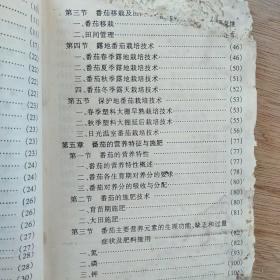 第三节 番茄移栽及田
一、番茄移栽
二、田间管理
第四节 露地番茄栽培技术 (46)
一、番茄春季露地栽培技术 (46)
二、番茄夏季露地栽培技术 (50)
三、番茄秋季露地栽培技术 (52)
四、番茄冬季露天栽培技术 (53)
第五节 保护地番茄栽培技术 (55)
一、春季塑料大棚早熟栽培技术 (55)
二、秋季塑料大棚延后栽培技术 (60)
三、日光温室番茄栽培技术 (65)
第五章 番茄的营养特征与施肥 (77)
第一节 番茄的营养特性 (77)
一、番茄的营养特性概述 (77)
二、番茄各生育期对养分的要求
三、番茄对养分的吸收与分配
第二节 番茄的施肥技术 (78)
一、育苗期施肥 (80)
二、大田施肥 (82)
第三节 番茄主要营养元素的生理功能、缺乏和过量
症状及肥料施用
一、氮
二、磷
三、钾
(1)
(1)
(23)
(24)
(24)
(27)
(28)
(29)
(30)